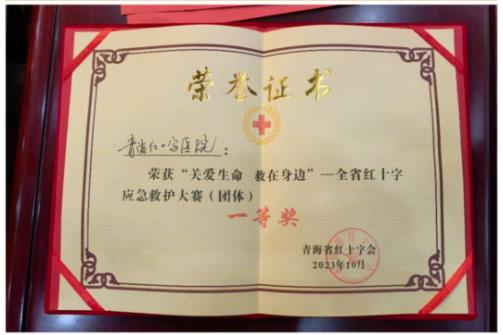 荣誉证书
青海红十字医院：
荣获“关爱生命 救在身边”—全省红十字
应急救护大赛（团体）
一等奖
青海省红十字会
2023年10月